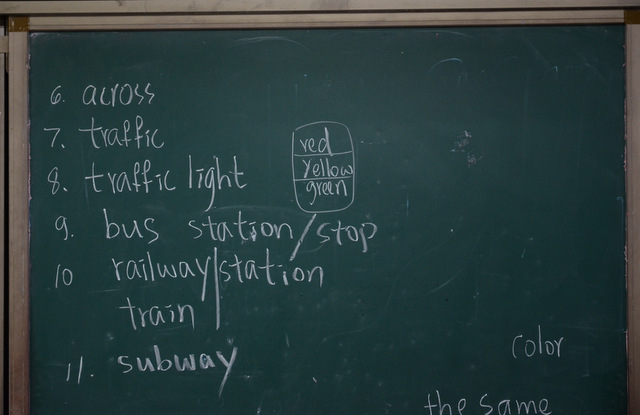 6. across
7. traffic
8. traffic light
red
yellow
green
9. bus station/stop
10 railway/station
train
11. subway
color
the same